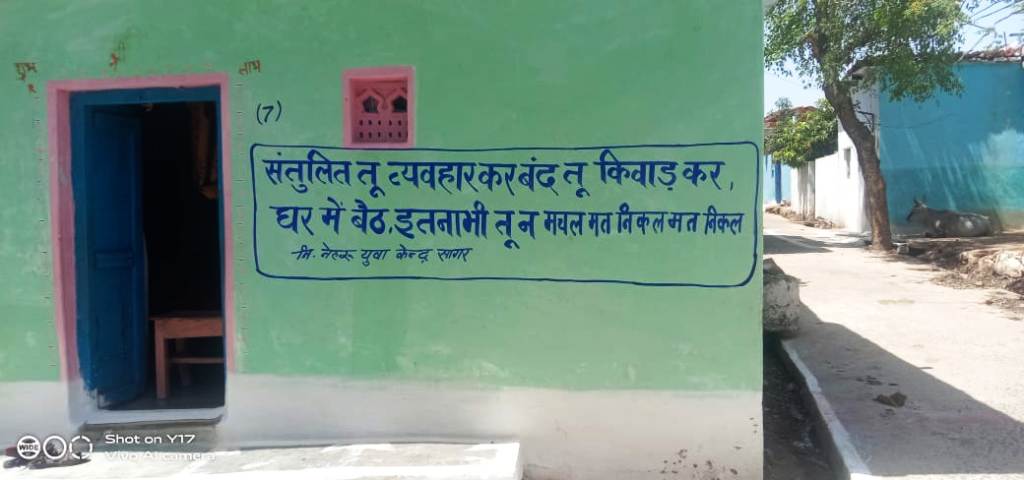 शुभ
लाभ
(7)
संतुलित तू व्यवहार कर बंद तू किवाड़ कर,
घर में बैठ, इतना भी तू न मचल मत निकल मत निकल
नि. नेहरू युवा केन्द्र सागर
Shot on Y17
Vivo AI camera